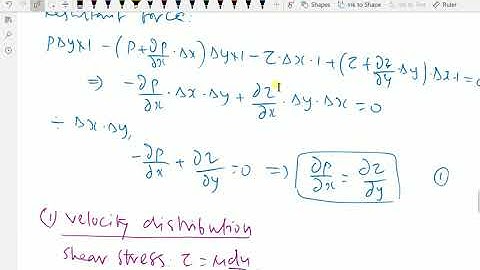 Shapes Ink to Shape Ink to Math Ruler
resultant force:
PΔy×1 - (P+∂P/∂x·Δx)Δy×1 - τ·Δx·1 + (τ+∂τ/∂y·Δy)·Δx·1=0
⇒ -∂P/∂x·Δx·Δy + ∂τ/∂x·Δy·Δx = 0
÷ Δx·Δy,
-∂P/∂x + ∂τ/∂y = 0 ⇒ ∂P/∂x = ∂τ/∂y ①
(1) velocity distribution
shear stress τ = μdu